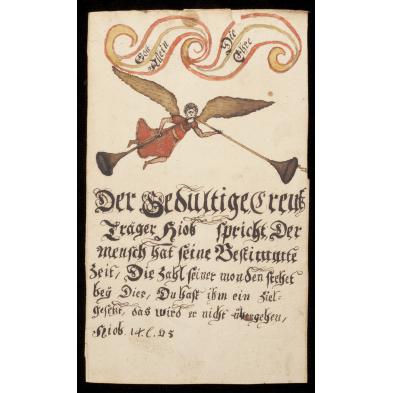 Gott Allein Die Ehre
Der Gedultige Creutz
Träger Hiob spricht, Der
mensch hat seine Bestimmte
Zeit, Die Zahl seiner monden stehet
bey Dier, Du hast ihm ein Ziel-
gesetzt, das wird er nicht übergehen,
Hiob. 14. C. v 5